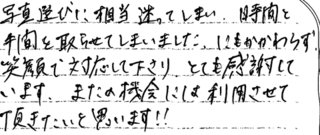 写真選びに相当迷ってしまい、時間と
手間を取らせてしまいました。にもかかわらず
笑顔で対応して下さり、とても感謝して
います。またの機会には利用させて
頂きたいと思います!!